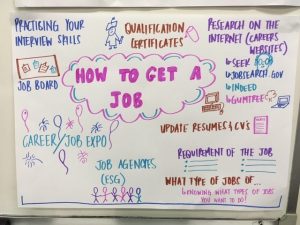 PRACTICING YOUR
INTERVIEW SKILLS
QUALIFICATION
CERTIFICATES
RESEARCH ON THE
INTERNET (CAREERS
WEBSITES)
→ SEEK
→ JOBSEARCH.GOV
→ INDEED
→ GUMTREE
JOB BOARD
HOW TO GET A
JOB
UPDATE RESUMES & CV's
CAREER/JOB EXPO
REQUIREMENT OF THE JOB
JOB AGENCIES
(ESG)
WHAT TYPE OF JOBS OF...
↳ KNOWING WHAT TYPES OF JOBS
YOU WANT TO DO!